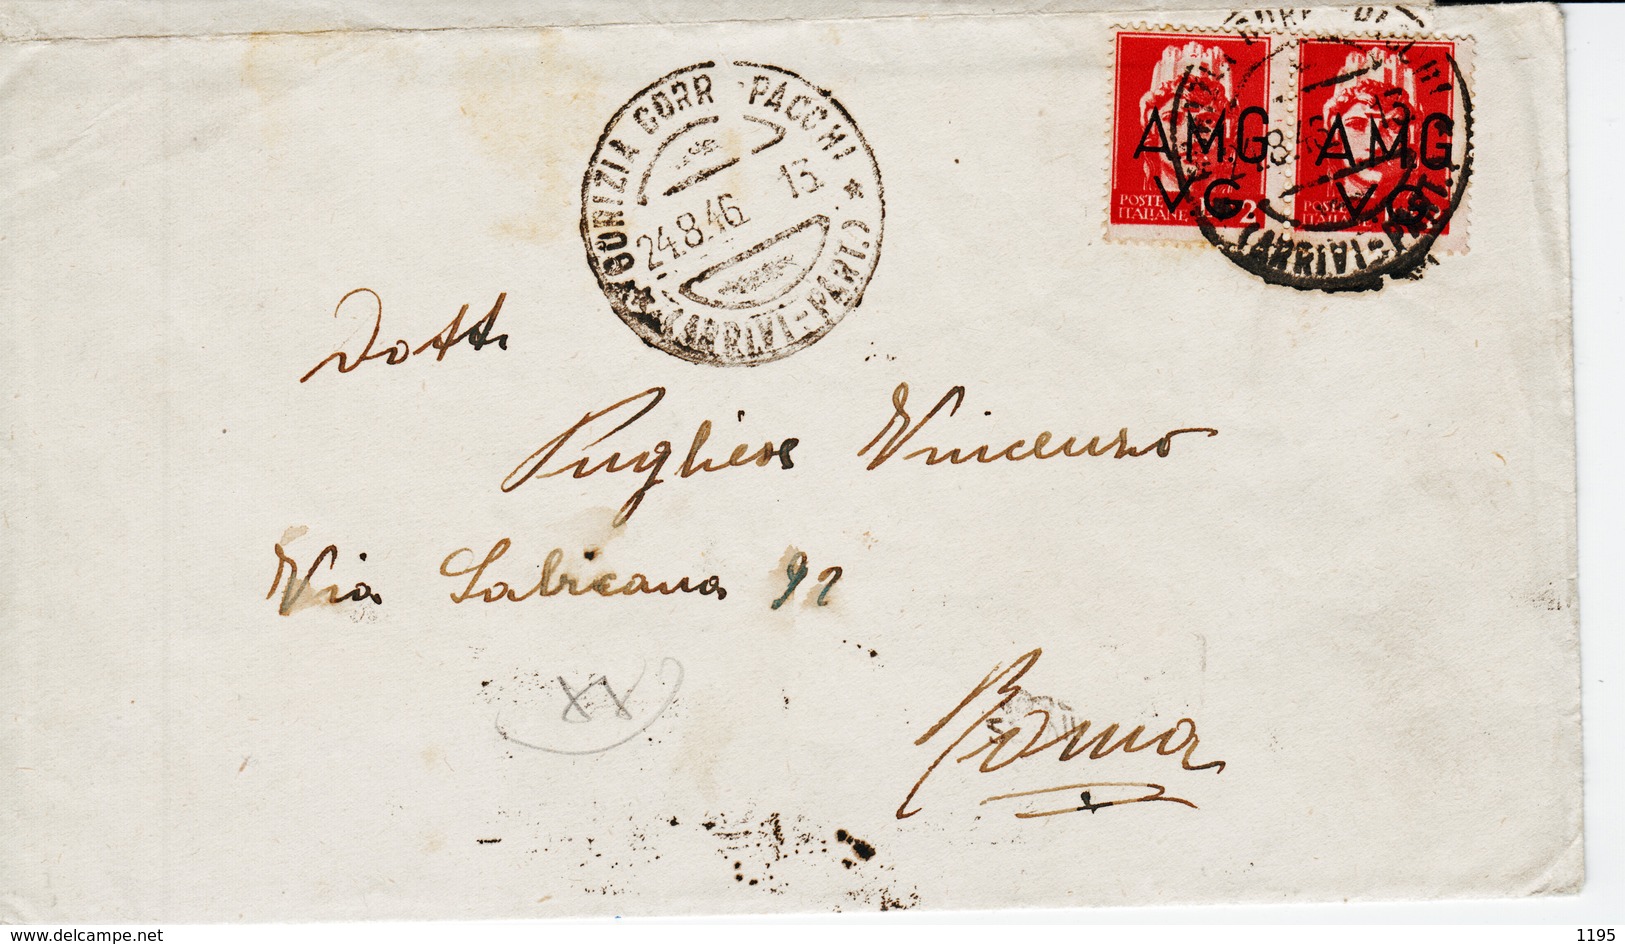 GORIZIA CORR PACCHI
24.8.46 13
(ARRIVI-PART.)
AMG
VG
POSTE
ITALIANE L. 2
AMG
VG
POSTE
ITALIANE
(ARRIVI-PART.)
Dott.
Pugliese Vincenzo
Via Labicana 92
Roma
www.delcampe.net
1195